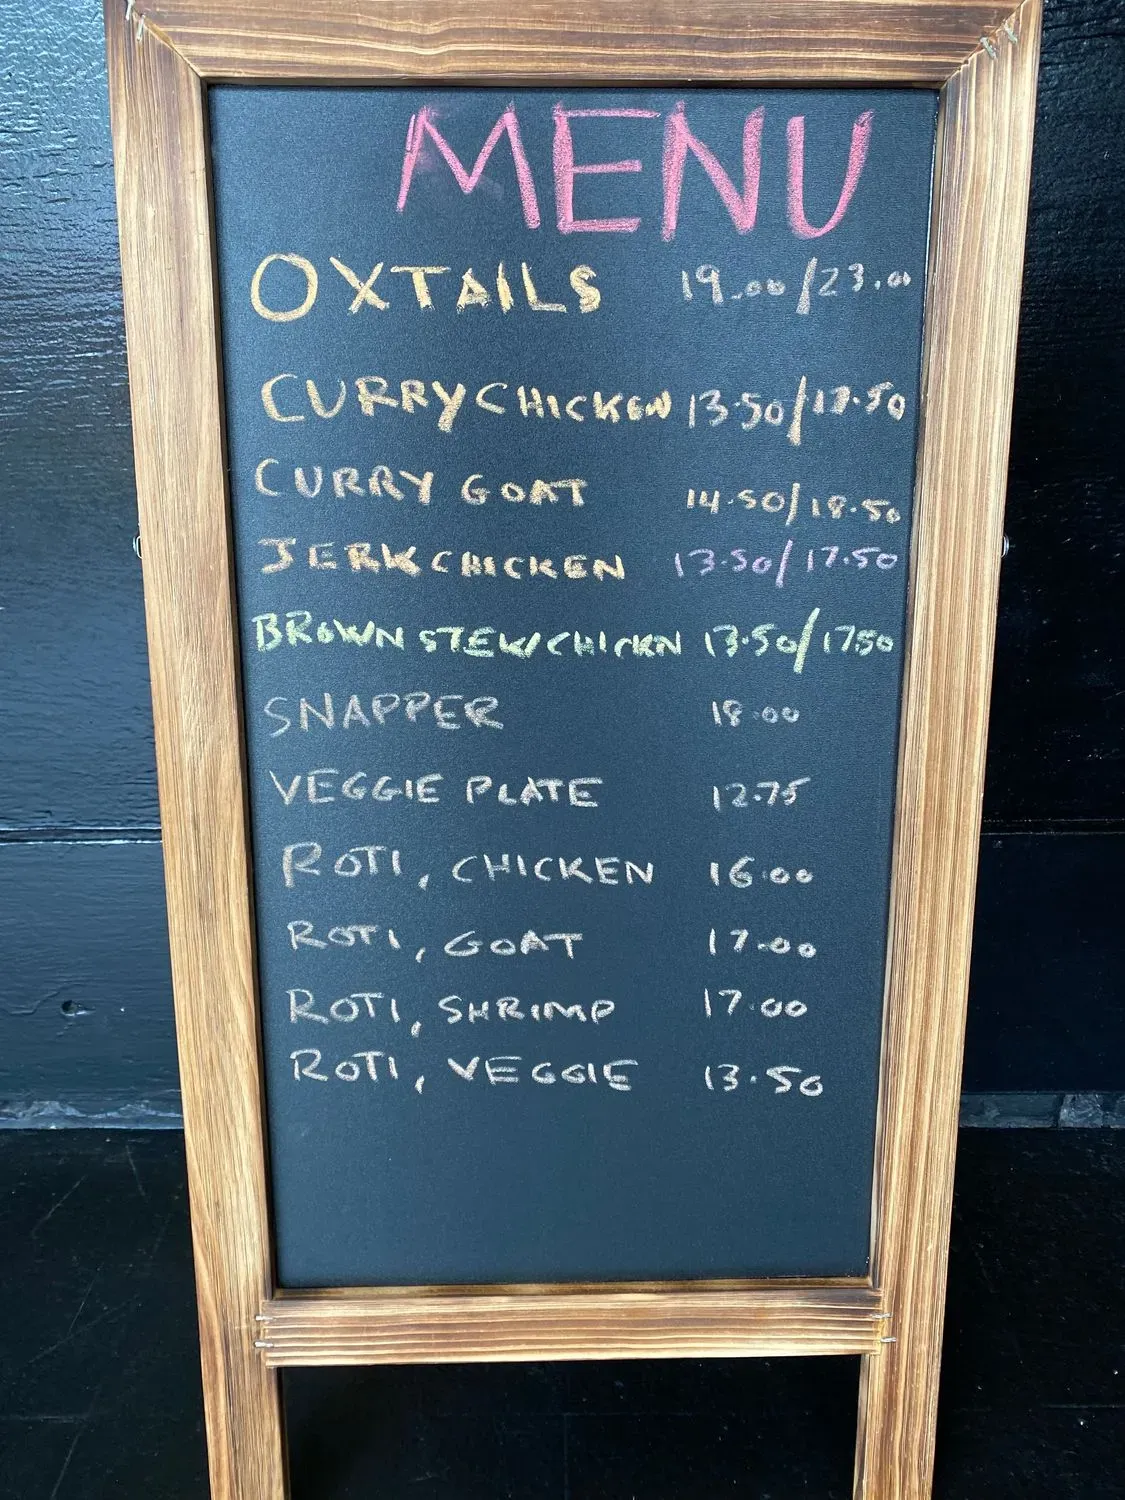 MENU
OXTAILS 19.00/23.00
CURRY CHICKEN 13.50/17.50
CURRY GOAT 14.50/18.50
JERK CHICKEN 13.50/17.50
BROWN STEW CHICKN 13.50/17.50
SNAPPER 18.00
VEGGIE PLATE 12.75
ROTI, CHICKEN 16.00
ROTI, GOAT 17.00
ROTI, SHRIMP 17.00
ROTI, VEGGIE 13.50